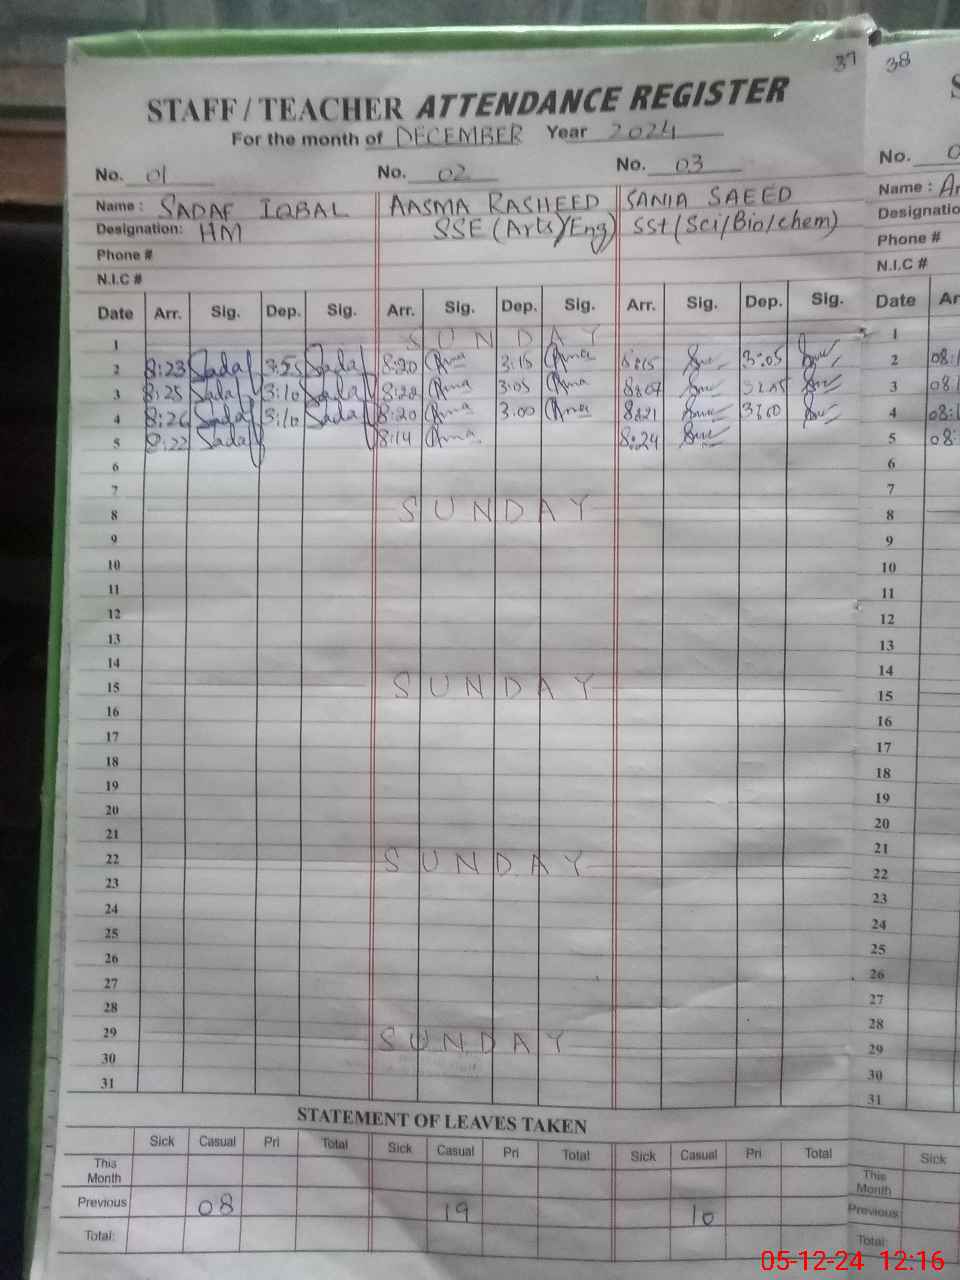 37 38
STAFF / TEACHER ATTENDANCE REGISTER
For the month of DECEMBER Year 2024
No. 01 No. 02 No. 03 No.
Name : SADAF IQBAL AASMA RASHEED SANIA SAEED Name :
Designation: HM SSE (Arts/Eng) SSt (Sci/Bio/chem)
Phone # Phone #
N.I.C # N.I.C #
Date Arr. Sig. Dep. Sig. Arr. Sig. Dep. Sig. Arr. Sig. Dep. Sig. Date
1 SUNDAY 1
2 8:23 Sadaf 3:25 Sadaf 8:20 3:15 8:15 3:05 2
3 8:25 Sadaf 3:10 Sadaf 8:22 3:05 8:07 3
4 8:26 Sadaf 3:10 Sadaf 8:20 3:00 8:21 4
5 8:22 Sadaf 8:14 8:24 5
6 6
7 7
8 SUNDAY 8
9 9
10 10
11 11
12 12
13 13
14 14
15 SUNDAY 15
16 16
17 17
18 18
19 19
20 20
21 21
22 SUNDAY 22
23 23
24 24
25 25
26 26
27 27
28 28
29 SUNDAY 29
30 30
31 31
STATEMENT OF LEAVES TAKEN
Sick Casual Pri Total Sick Casual Pri Total Sick Casual Pri Total Sick
This Month This Month
Previous 08 19 10 Previous
Total: Total:
05-12-24 12:16